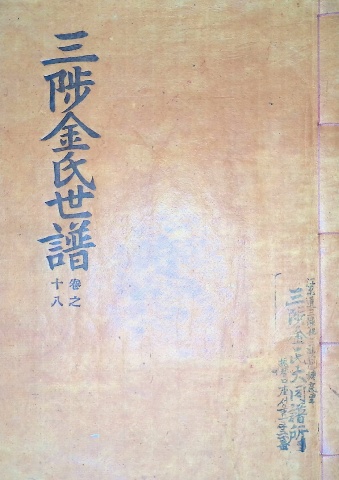 三陟金氏世譜
卷之
十八
三陟金氏大同譜所